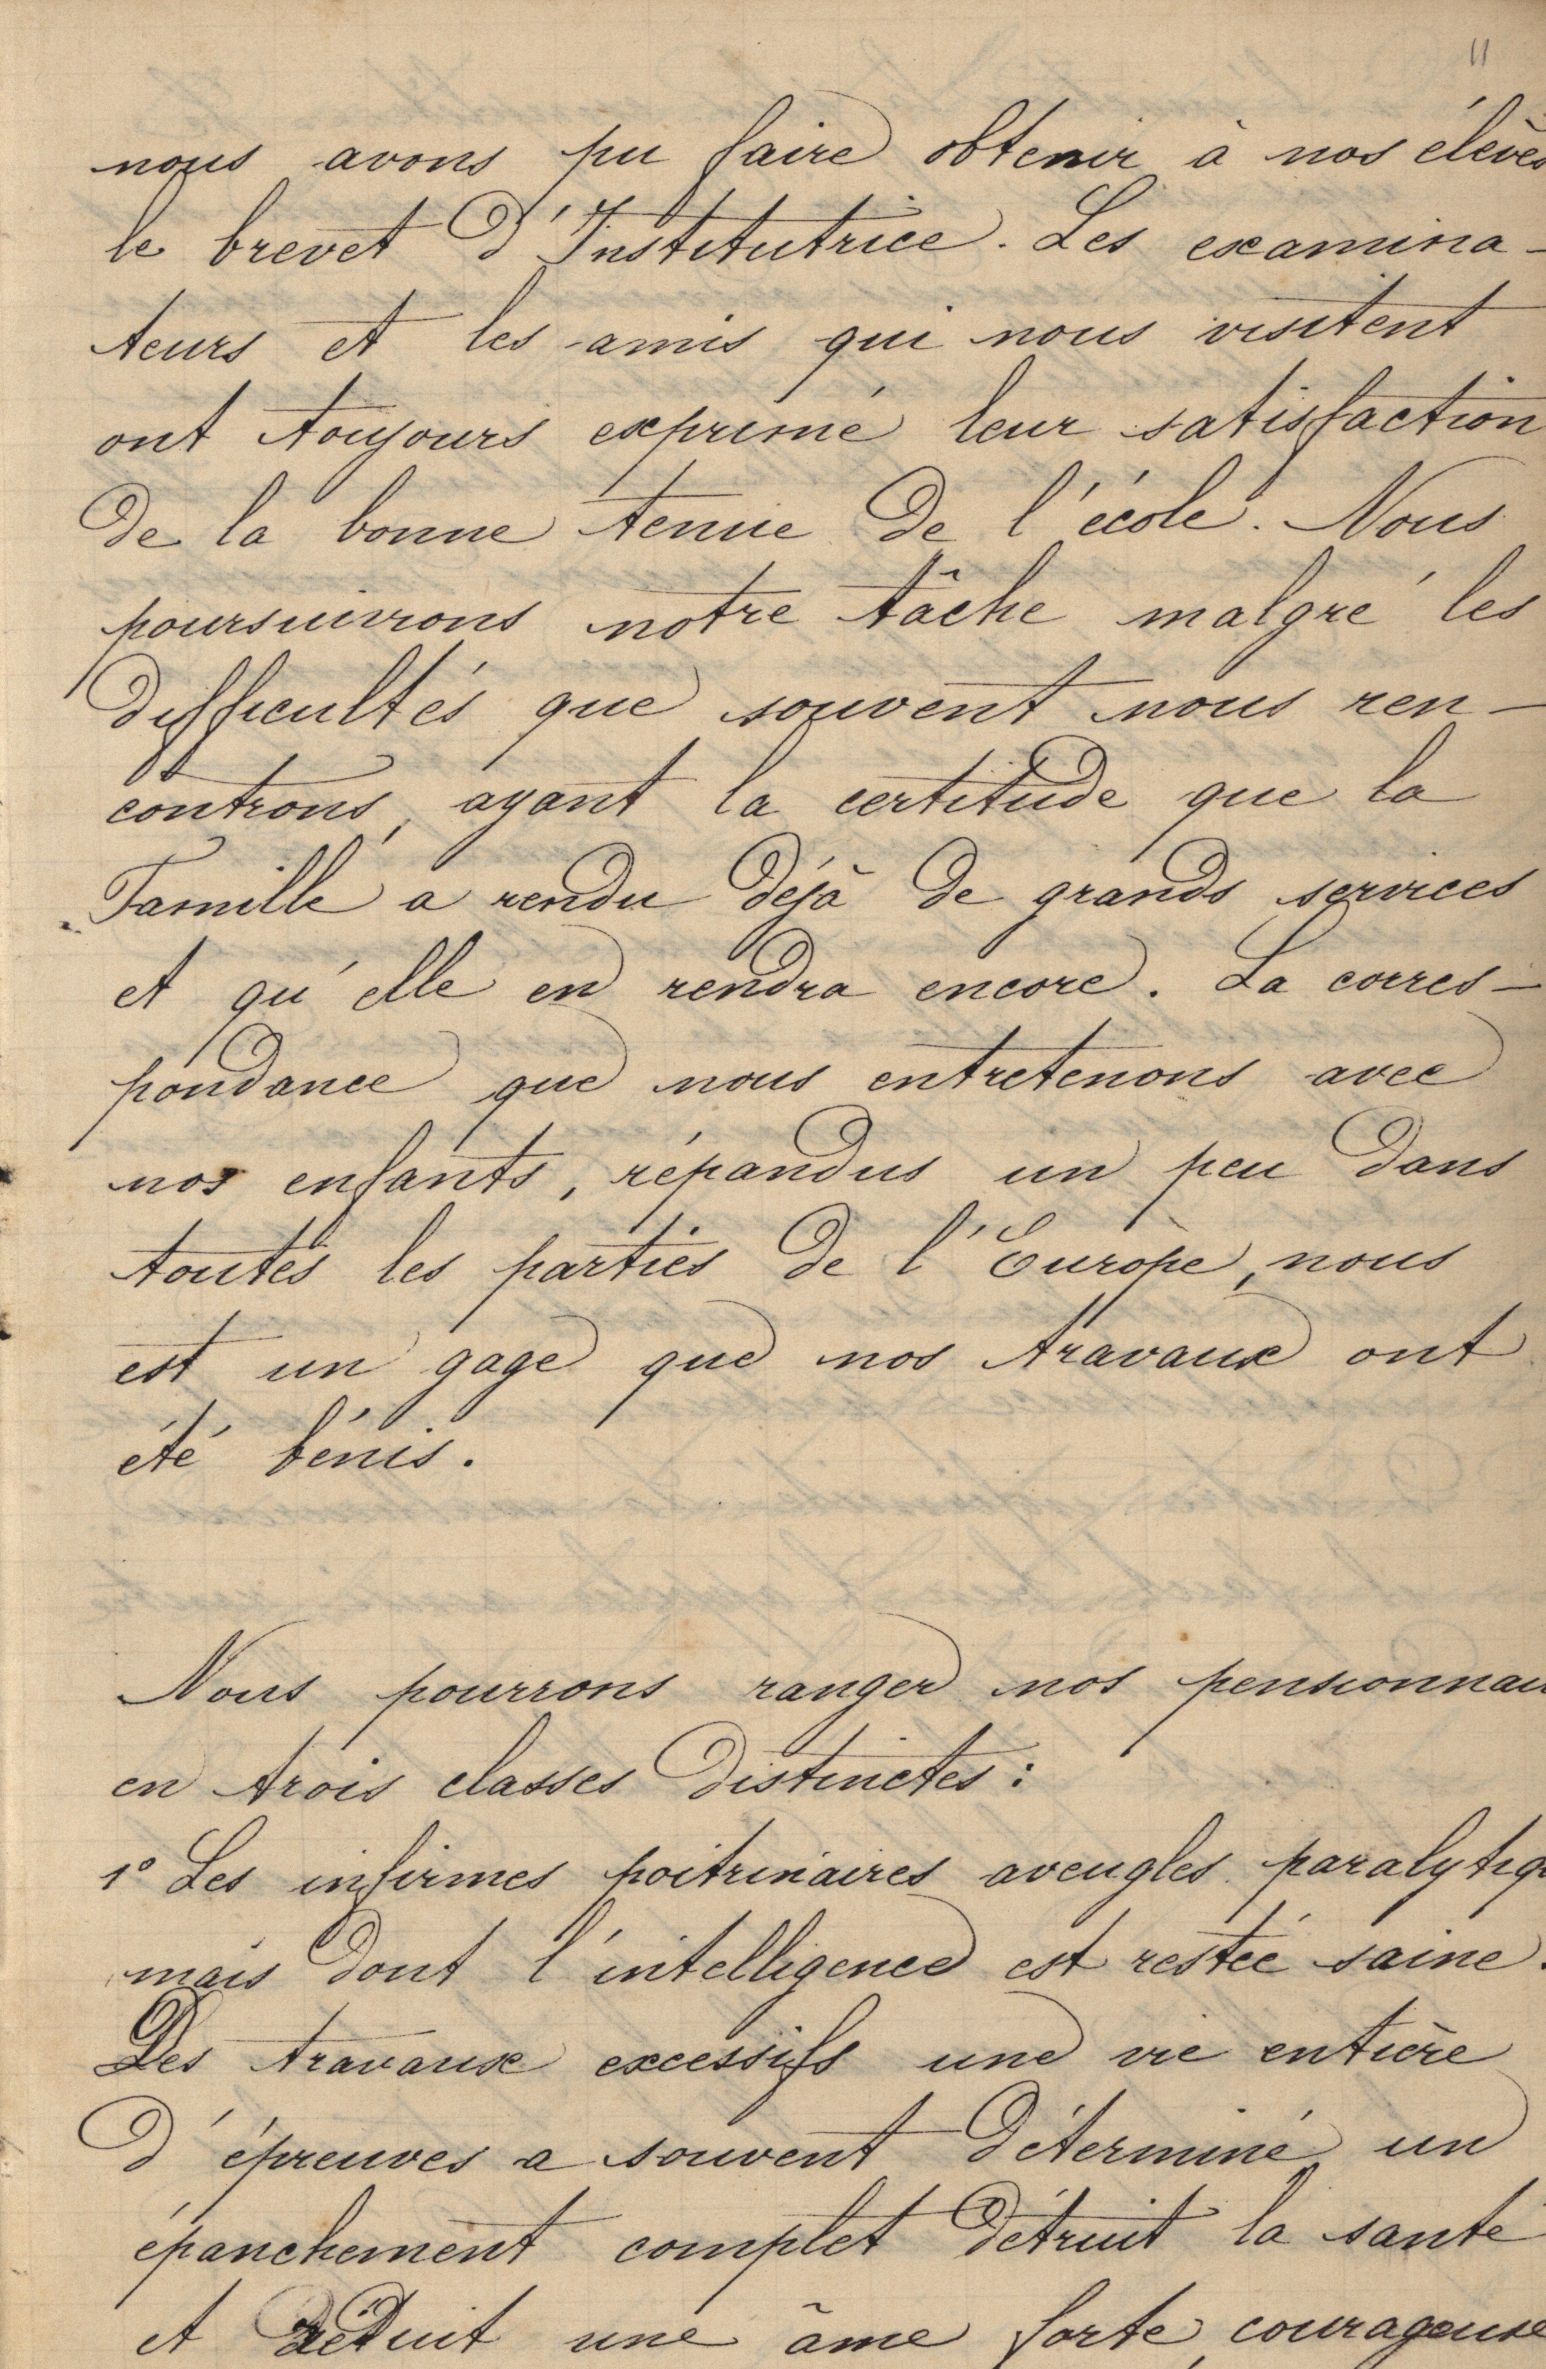 11
nous avons pu faire obtenir à nos élèves
le brevet d'Institutrice. Les examina-
teurs et les amis qui nous visitent
ont toujours exprimé leur satisfaction
de la bonne tenue de l'école. Nous
poursuivrons notre tâche malgré les
difficultés que souvent nous ren-
controns, ayant la certitude que la
Famille a rendu déjà de grands services
et qu'elle en rendra encore. La corres-
pondance que nous entretenons avec
nos enfants, répandus un peu dans
toutes les parties de l'Europe, nous
est un gage que nos travaux ont
été bénis.
Nous pourrons ranger nos pensionnai
en trois classes distinctes:
1° Les infirmes poitrinaires aveugles paralytiq
mais dont l'intelligence est restée saine.
Des travaux excessifs une vie entière
d'épreuves a souvent déterminé un
épanchement complet détruit la santé
et réduit une âme forte, courageuse